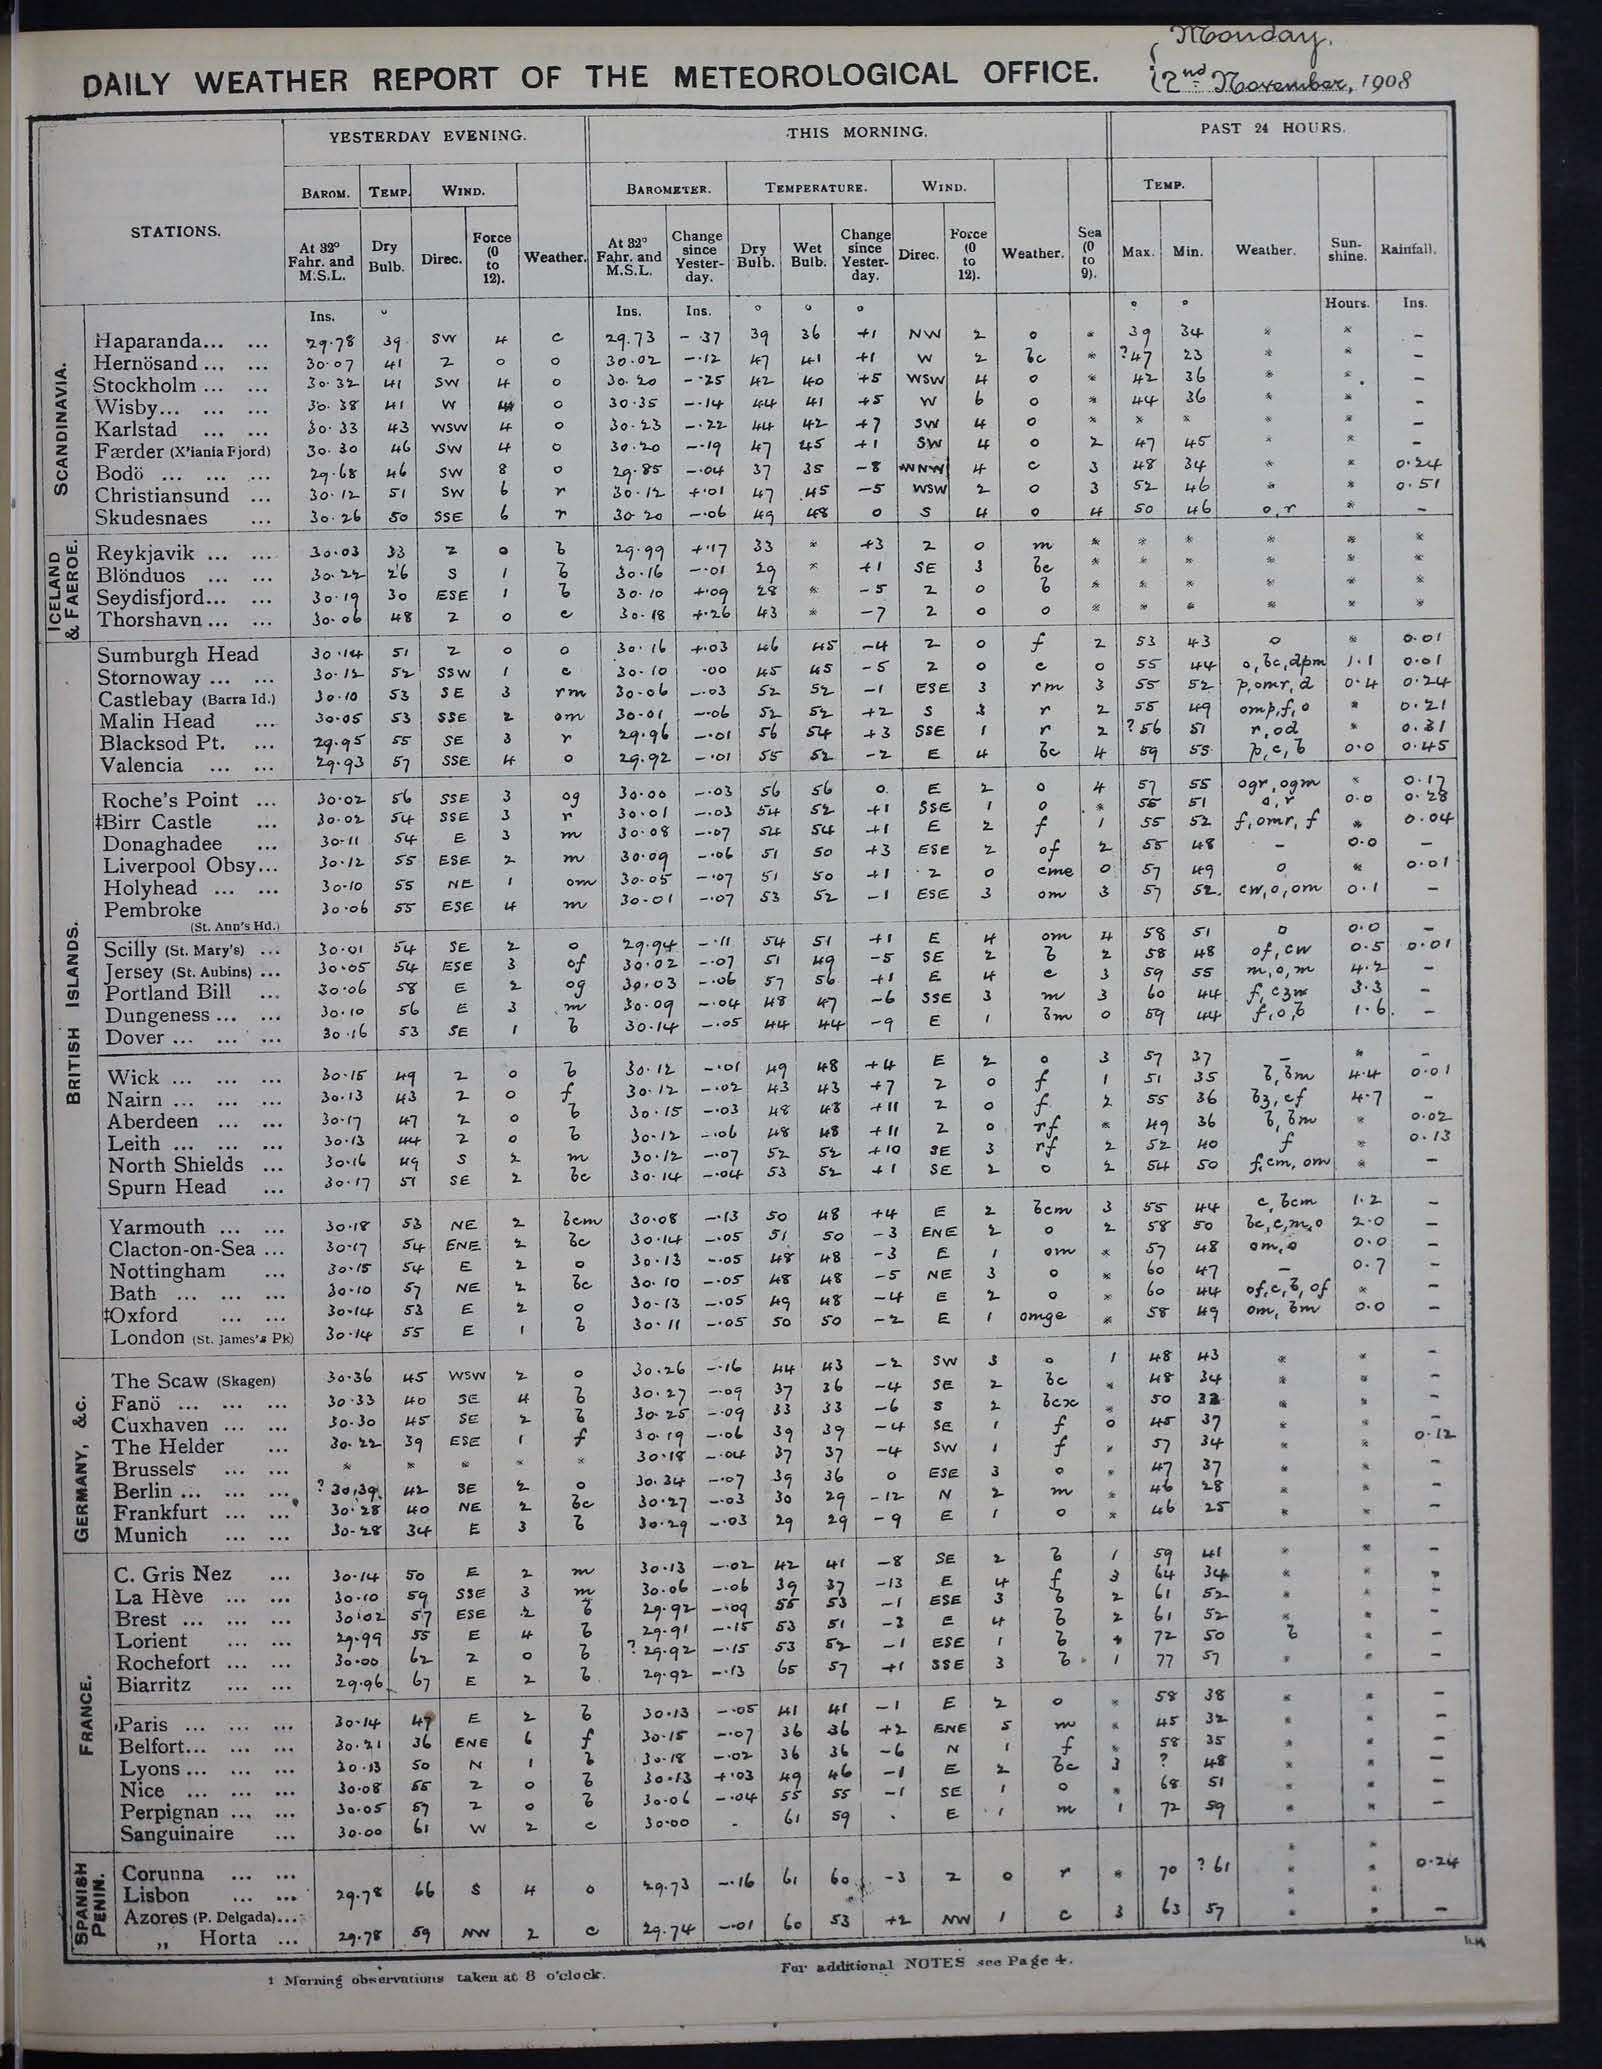 Monday,
DAILY WEATHER REPORT OF THE METEOROLOGICAL OFFICE. 2nd November, 1908
YESTERDAY EVENING. THIS MORNING. PAST 24 HOURS.
STATIONS. BAROM. TEMP. WIND. Weather. BAROMETER. TEMPERATURE. WIND. Weather. Sea (0 to 9). TEMP. Weather. Sunshine. Rainfall.
At 32° Fahr. and M.S.L. Dry Bulb. Direc. Force (0 to 12). At 32° Fahr. and M.S.L. Change since Yesterday. Dry Bulb. Wet Bulb. Change since Yesterday. Direc. Force (0 to 12). Max. Min.
Ins. ° Ins. Ins. ° ° ° ° ° Hours. Ins.
SCANDINAVIA.
Haparanda... ... 29.78 39 SW 4 c 29.73 -.37 39 36 +1 NW 2 o * 39 34 * * -
Hernösand ... ... 30.07 41 Z 0 o 30.02 -.12 47 41 +1 W 2 bc * ?47 23 * * -
Stockholm ... ... 30.32 41 SW 4 o 30.20 -.25 42 40 +5 WSW 4 o * 42 36 * * -
Wisby... ... ... 30.38 41 W o 30.35 -.14 44 41 +5 W 6 o * 44 36 * * -
Karlstad ... ... 30.33 43 WSW 4 o 30.23 -.22 44 42 +7 SW 4 o * * * * * -
Færder (X'iania Fjord) 30.30 46 SW 4 o 30.20 -.19 47 45 +1 SW 4 o 2 47 45 * * -
Bodö ... ... ... 29.68 46 SW 8 o 29.85 -.04 37 35 -8 WNW 4 c 3 48 34 * * 0.24
Christiansund ... 30.12 51 SW 6 r 30.12 +.01 47 45 -5 WSW 2 o 3 52 46 * * 0.51
Skudesnaes ... 30.26 50 SSE 6 r 30.20 -.06 49 48 0 S 4 o 4 50 46 o,r * -
ICELAND & FAEROE.
Reykjavik ... ... 30.03 33 Z 0 b 29.99 +.17 33 * +3 Z 0 m * * * * * *
Blönduos ... ... 30.22 26 S 1 b 30.16 -.01 29 * +1 SE 3 bc * * * * * *
Seydisfjord... ... 30.19 30 ESE 1 b 30.10 +.09 28 * -5 Z 0 b * * * * * *
Thorshavn ... ... 30.06 48 Z 0 c 30.18 +.26 43 * -7 Z 0 o * * * * * *
BRITISH ISLANDS.
Sumburgh Head 30.14 51 Z 0 o 30.16 +.03 46 45 -4 Z 0 f 2 53 43 o * 0.01
Stornoway ... ... 30.12 52 SSW 1 c 30.10 .00 45 45 -5 Z 0 c 0 55 44 o,bc,dpm 1.1 0.01
Castlebay (Barra Id.) 30.10 53 SE 3 rm 30.06 -.03 52 52 -1 ESE 3 rm 3 55 52 p,omr,d 0.4 0.24
Malin Head ... 30.05 53 SSE 2 om 30.01 -.06 52 52 +2 S 3 r 2 55 49 omp,f,o * 0.21
Blacksod Pt. ... 29.95 55 SE 3 r 29.96 -.01 56 54 +3 SSE 1 r 2 ?56 51 r,od * 0.31
Valencia ... ... 29.93 57 SSE 4 o 29.92 -.01 55 52 -2 E 4 bc 4 59 55 p,c,b 0.0 0.45
Roche's Point ... 30.02 56 SSE 3 og 30.00 -.03 56 56 0 E 2 o 4 57 55 ogr,ogm * 0.17
‡Birr Castle ... 30.02 54 SSE 3 r 30.01 -.03 54 52 +1 SSE 1 o * 55 51 o,r 0.0 0.28
Donaghadee ... 30.11 54 E 3 m 30.08 -.07 54 54 +1 E 2 f 1 55 52 f,omr,f * 0.04
Liverpool Obsy... 30.12 55 ESE 2 m 30.09 -.06 51 50 +3 ESE 2 of 2 55 48 - 0.0 -
Holyhead ... ... 30.10 55 NE 1 om 30.05 -.07 51 50 +1 Z 0 cme 0 57 49 o * 0.01
Pembroke (St. Ann's Hd.) 30.06 55 ESE 4 m 30.01 -.07 53 52 -1 ESE 3 om 3 57 52 cw,o,om 0.1 -
Scilly (St. Mary's) ... 30.01 54 SE 2 o 29.94 -.11 54 51 +1 E 4 om 4 58 51 o 0.0 -
Jersey (St. Aubins) ... 30.05 54 ESE 3 of 30.02 -.07 51 49 -5 SE 2 b 2 58 48 of,cw 0.5 0.01
Portland Bill ... 30.06 58 E 2 og 30.03 -.06 57 56 +1 E 4 c 3 59 55 m,o,m 4.2 -
Dungeness ... ... 30.10 56 E 3 m 30.09 -.04 48 47 -6 SSE 3 m 3 60 44 3.3 -
Dover ... ... ... 30.16 53 SE 1 b 30.14 -.05 44 44 -9 E 1 bm 0 59 44 f,o,b 1.6 -
Wick ... ... ... 30.15 49 Z 0 b 30.12 -.01 49 48 +4 E 2 o 3 57 37 - * -
Nairn ... ... ... 30.13 43 Z 0 f 30.12 -.02 43 43 +7 Z 0 f 1 51 35 b,bm 4.4 0.01
Aberdeen ... ... 30.17 47 Z 0 b 30.15 -.03 48 48 +11 Z 0 f 2 55 36 bz,cf 4.7 -
Leith ... ... ... 30.13 44 Z 0 b 30.12 -.06 48 48 +11 Z 0 rf * 49 36 b,bm * 0.02
North Shields ... 30.16 49 S 2 m 30.12 -.07 52 52 +10 SE 3 rf 2 52 40 f * 0.13
Spurn Head ... 30.17 51 SE 2 bc 30.14 -.04 53 52 +1 SE 2 o 2 54 50 f,cm,om * -
Yarmouth ... ... 30.18 53 NE 2 bcm 30.08 -.13 50 48 +4 E 2 bcm 3 55 44 c,bcm 1.2 -
Clacton-on-Sea ... 30.17 54 ENE 2 bc 30.14 -.05 51 50 -3 ENE 2 o 2 58 50 bc,c,m,o 2.0 -
Nottingham ... 30.15 54 E 2 o 30.13 -.05 48 48 -3 E 1 om * 57 48 om,o 0.0 -
Bath ... ... ... 30.10 57 NE 2 bc 30.10 -.05 48 48 -5 NE 3 o * 60 47 - 0.7 -
‡Oxford ... ... 30.14 53 E 2 o 30.13 -.05 49 48 -4 E 2 o * 60 44 of,c,b,of * -
London (St. James's Pk) 30.14 55 E 1 b 30.11 -.05 50 50 -2 E 1 omge * 58 49 om,bm 0.0 -
GERMANY, &c.
The Scaw (Skagen) 30.36 45 WSW 2 o 30.26 -.16 44 43 -2 SW 3 o 1 48 43 * * -
Fanö ... ... ... 30.33 40 SE 4 b 30.27 -.09 37 36 -4 SE 2 bc * 48 34 * * -
Cuxhaven ... ... 30.30 45 SE 2 b 30.25 -.09 33 33 -6 S 2 bcx * 50 * * -
The Helder ... 30.22 39 ESE 1 f 30.19 -.06 39 39 -4 SE 1 f 0 45 37 * * -
Brussels ... ... * * * * * 30.18 -.04 37 37 -4 SW 1 f * 57 34 * * 0.12
Berlin ... ... ... ?30.39 42 SE 2 o 30.34 -.07 39 36 0 ESE 3 o * 47 37 * * -
Frankfurt ... ... 30.28 40 NE 2 bc 30.27 -.03 30 29 -12 N 2 m * 46 28 * * -
Munich ... ... 30.28 34 E 3 b 30.29 -.03 29 29 -9 E 1 o * 46 25 * * -
FRANCE.
C. Gris Nez ... 30.14 50 E 2 m 30.13 -.02 42 41 -8 SE 2 b 1 59 41 * * -
La Hève ... ... 30.10 59 SSE 3 m 30.06 -.06 39 37 -13 E 4 f 3 64 34 * * -
Brest ... ... ... 30.02 57 ESE 2 b 29.92 -.09 55 53 -1 ESE 3 b 2 61 52 * * -
Lorient ... ... 29.99 55 E 4 b 29.91 -.15 53 51 -3 E 4 b 2 61 52 * * -
Rochefort ... ... 30.00 62 Z 0 b ?29.92 -.15 53 52 -1 ESE 1 b * 72 50 b * -
Biarritz ... ... 29.96 67 E 2 b 29.92 -.13 65 57 +1 SSE 3 b 1 77 57 * * -
Paris ... ... ... 30.14 47 E 2 b 30.13 -.05 41 41 -1 E 2 o * 58 38 * * -
Belfort... ... ... 30.21 36 ENE 6 f 30.15 -.07 36 36 +2 ENE 5 m * 45 32 * * -
Lyons ... ... ... 30.13 50 N 1 b 30.18 -.02 36 36 -6 N 1 f * 58 35 * * -
Nice ... ... ... 30.08 55 Z 0 b 30.13 +.03 49 46 -1 E 2 bc 3 ? 48 * * -
Perpignan ... ... 30.05 57 Z 0 b 30.06 -.04 55 55 -1 SE 1 o * 68 51 * * -
Sanguinaire ... 30.00 61 W 2 c 30.00 - 61 59 . E 1 m 1 72 59 * * -
SPANISH PENIN.
Corunna ... ... * *
Lisbon ... ... 29.78 66 S 4 o 29.73 -.16 61 60 -3 Z 0 r * 70 ?61 * * 0.24
Azores (P. Delgada)... * *
„ Horta ... 29.78 59 NW 2 c 29.74 -.01 60 53 +2 NW 1 c 3 63 57 * * -
‡ Morning observations taken at 8 o'clock. For additional NOTES see Page 4.